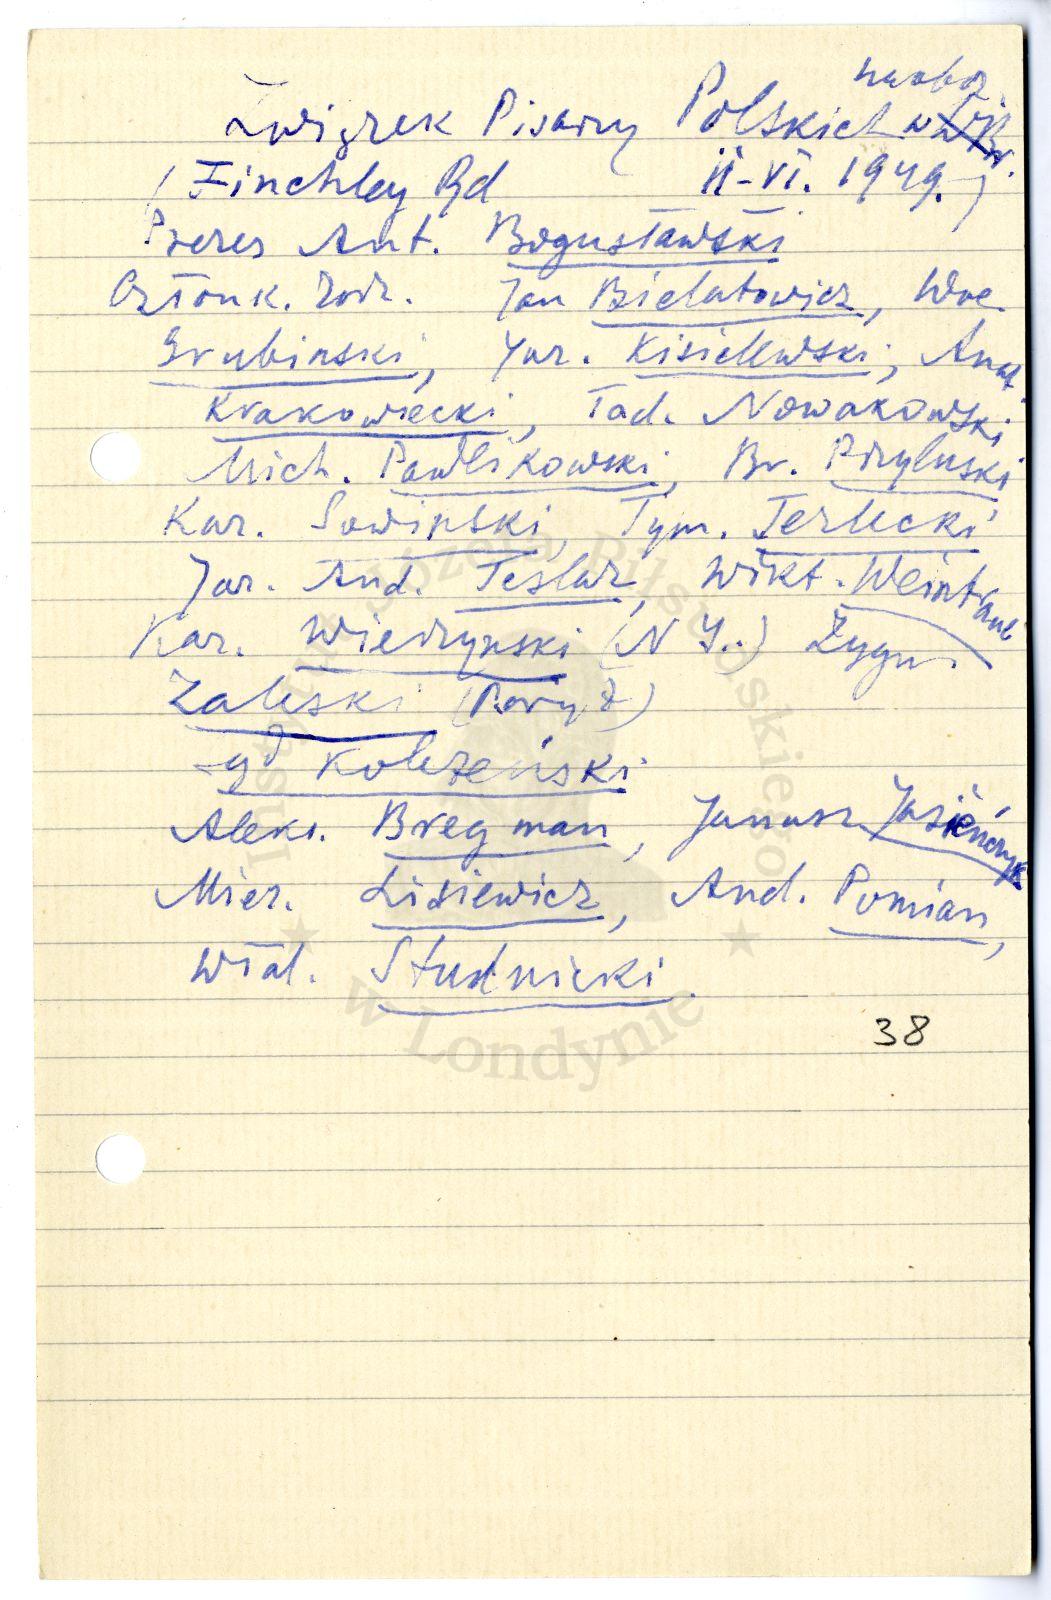 na obcz.
Związek Pisarzy Polskich w W Br.
( Finchley Rd II-VI. 1949. )
Prezes Ant. Bogusławski
Członk. zarz. Jan Bielatowicz, Wac
Grubiński, Joz. Kisielewski, Anat.
Krakowiecki, Tad. Nowakowski
Mich. Pawlikowski, Br. Przyłuski
Kar. Sowiński, Tym. Terlecki
Joz. And. Teslar, Wikt. Weintraub
Kaz. Wierzyński (N Y..) Zygm.
Zaleski (Paryż)
sąd koleżeński
Aleks. Bregman, Janusz Jasieńczyk
Miecz. Lisiewicz, And. Pomian,
Wład. Studnicki
38
Instytut Józefa Piłsudskiego
w Londynie